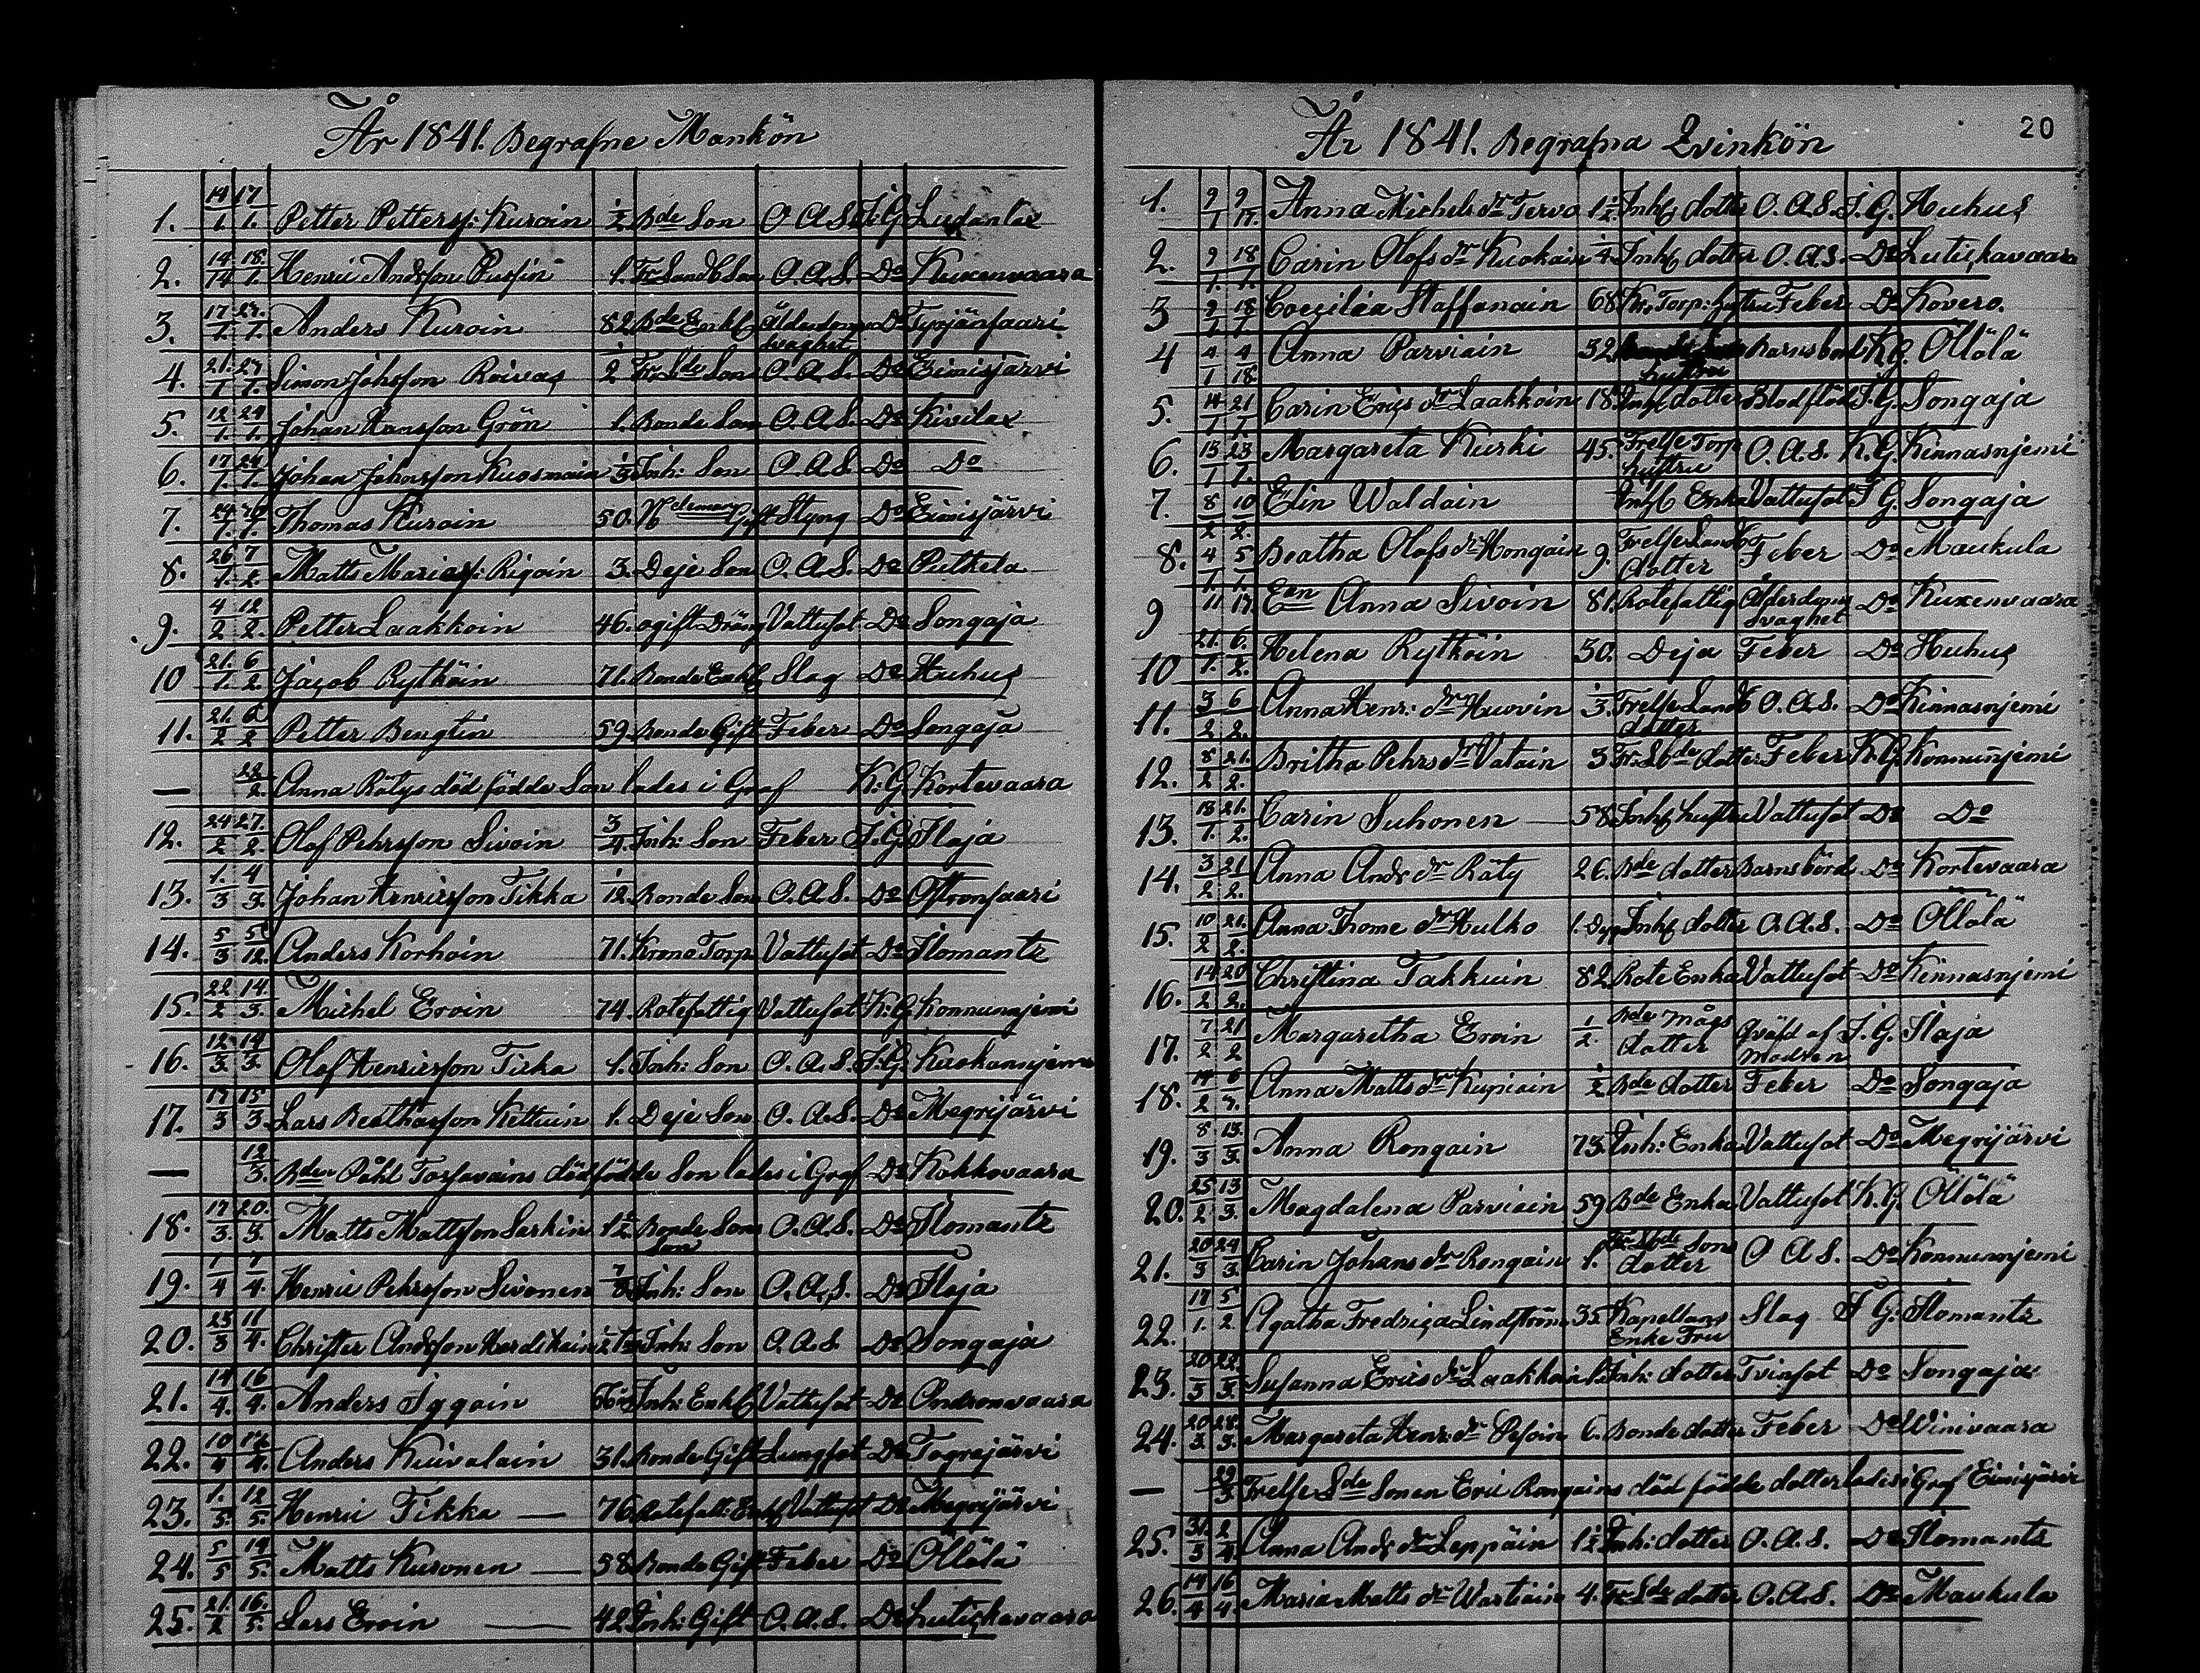 År 1841. Begrafne Mankön
1. 14/1. 17/1. Petter Petterss: Kuroin 1/2 Bde Son O.A.S. S:G. Ludantax
2. 14/14 18/1. Henric Andersson Pussin 1. Fr Landb Son O.A.S. Do Kuxenvaara
3. 17/1. 27/1. Anders Kuroin 82. Bde Enkl Ålderdoms Do Tyrjänsaari
svaghet
4. 21/1. 27/1. Simon Johsson Roivas 2 Fr Lde Son O.A.S. Do Eimisjärvi
5. 12/1. 24/1. Johan Hansson Grön 1. Bonde Son O.A.S. Do Kivilax
6. 17/1. 24/1. Johan Johnsson Kuosmain 1/3 Inh: Son O.A.S. Do Do
7. Thomas Kuroin 50. Gift Styng Do Eimisjärvi
8. 26/1. 7/2. Matts Mariass: Rigoin 3. Deje Son O.A.S. Do Putkela
9. 4/2 12/2. Petter Laakkoin 46. ogift Dräng Vattusot Do Songaja
10 21/1. 6/2. Jacob Rytköin 71. Bonde Enkl Slag Do Huhus
11. 21/2 6/2 Petter Bengtin 59. Bonde Gift Feber Do Songaja
— 22/2. Anna Rätys död födde Son lades i Graf K:G. Kortevaara
12. 24/2 27/2. Olof Pehrsson Sivoin 3/4 Inh: Son Feber S:G. Ilaja
13. 1/3 4/3. Johan Henricsson Tikka 1/12. Bonde Son O.A.S. Do Oftronsaari
14. 5/3 5/12. Anders Korhoin 71. Krono Torp Vattusot Do Ilomants
15. 22/2 14/3. Michel Eroin 74. Rotefattig Vattusot K:G. Konnunnjemi
16. 12/3. 14/3. Olof Henricsson Ticka 1. Inh: Son O.A.S. S:G. Kuokanjemi
17. 17/3 15/3 Lars Beathasson Kettuin 1. Deje Son O.A.S. Do Megrijärvi
— 12/3. Bden Påhl Torfvains dödfödde Son lades i Graf Do Kokkovaara
18. 17/3. 20/3. Matts Mattsson Sarkin 1 1/2 Bonde Sons O.A.S. Do Ilomants
Son
19. 1/4 7/4. Henric Pehrsson Sivonen 7/8 Inh: Son O.A.S. Do Ilaja
20. 23/3 11/4. Christer Andersson Hardikain Inh: Son O.A.S. Do Songaja
21. 14/4. 16/4. Anders Iggoin Inh: Enkl Vattusot Do Andronvaara
22. 10/4 Anders Kuivalain 31. Bonde Gift Lungsot Do Togrejärvi
23. 1./5. 12/5. Henric Tikka — 76. Rotefatt: Enkl Vattusot Do Megrijärvi
24. 5/5 14/5. Matts Kuronen — 58 Bonde Gift Feber Do Öllölä
25. 21./2 16./5. Lars Eroin — 42 Inh: Gift O.A.S. Do Lutickavaara
År 1841. Begrafna Qvinkön 20
1. 9/1 9/17. Anna Michels dr Tervo 1 1/2 Inhs dotter O.A.S. S.G. Huhus
2. 9/1. 18/1. Carin Olofs dr Kuokain 1/4 Inhs dotter O.A.S. Do Lutickavaara
3 9/1 18/1 Coecilia Staffanain 68 Kr. Torp: hustru Feber Do Kovero.
4 4/1 4/18. Anna Parviain 32 Barnsbörd K.G. Öllölä
hustru
5. 14/1 21/1 Carin Erics dr Laakkoin 18 Inhs dotter Blodflöd S.G. Songaja
6. 13/1 23/1. Margareta Kurki 45. Frelse Torp O.A.S. K.G. Kinnasnjemi
hustru
7. 8/2 10/2. Elin Waldain Inhs Enka Vattusot S G. Songaja
8. 4/1. 5/1. Beatha Olofs dr Hongain 9. Frelse Landb Feber Do Maukula
dotter
9 11 17. Ean Anna Sivoin 81. Rotefattig Ålderdoms Do Kuxenvaara
svaghet
10 21./1. 6./2. Helena Rytköin 30. Deja Feber Do Huhus
11. 3/2 6/2. Anna Henr: dr Huovin 1/3. Frelse Landb O.A.S. Do Kinnasnjemi
dotter
12. 8/2 21./2. Britha Pehrs dr Vatain 3 dotter Feber K.G. Konnunnjemi
13. 18/1. 21./2. Carin Suhonen — 58 Inhs hustru Vattusot Do Do
14. 3/2 21/2. Anna Andr dr Räty 26. Bde dotter Barnsbörd Do Kortevaara
15. 10/2 21./2. Anna Thome dr Hulko 1. Dyg Inhs dotter O.A.S. Do Öllölä
16. 14/2 20/2. Christina Takkuin 82 Rote Enka Vattusot Do Kinnasnjemi
17. 7/2 21/2 Margaretha Eroin 1/2. Bde mågs Qväfd af S.G. Ilaja
dotter Modren
18. Anna Matts dr Kupiain 1/2 Bde dotter Feber Do Songaja
19. 8/3 13./3. Anna Rongain 73. Inh: Enka Vattusot Do Megrijärvi
20. 25/2 13/3. Magdalena Parviain 59 Bde Enka Vattusot K.G. Öllölä
21. 20/3 24/3. Carin Johans dr Rongain 1. Sons O A S. Do Konnunnjemi
dotter
22. 17/1. 5/2 Agatha Fredrica Lindström 35. Kapellans Slag S G. Ilomants
Enke Fru
23. 20/3 22./3. Susanna Erics dr Laakkoin 1. Inh: dotter Tvinsot Do Songaja
24. 20/3. 28./3. Margareta Henr: dr Pesoin 6. Bonde dotter Feber Do Winivaara
— 29/3. Frelse Lde Sonen Eric Rongains död födde dotter lades i Graf Eimisjärvi
25. 31./3 2/4. Anna Andr dr Leppäin 1 1/2 Inh: dotter O.A.S. Do Ilomants
26. 14/4 16/4. Maria Matts dr Wartiain 4. Fr Lde dotter O.A.S. Do Maukula